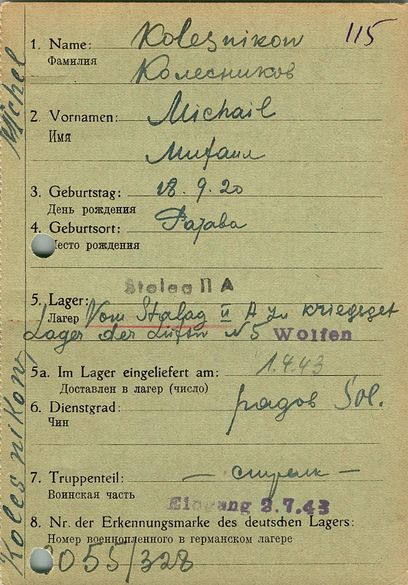 115
1. Name: Kolesnikow
Фамилия Колесников
2. Vornamen: Michail
Имя
Михаил
3. Geburtstag: 18.9.20
День рождения
4. Geburtsort:
Место рождения
Stalag II A
5. Lager:
Лагер Vom Stalag II A zu kriegsgef
Lager der Luftw N5 Wolfen
5a. Im Lager eingeliefert am: 1.4.43
Доставлен в лагер (число)
6. Dienstgrad: рядов Sol.
Чин
7. Truppenteil: — стрелк —
Воинская часть
Eingang 2.7.43
8. Nr. der Erkennungsmarke des deutschen Lagers:
Номер военнопленного в германском лагере
055/328
Kolesnikow Michel